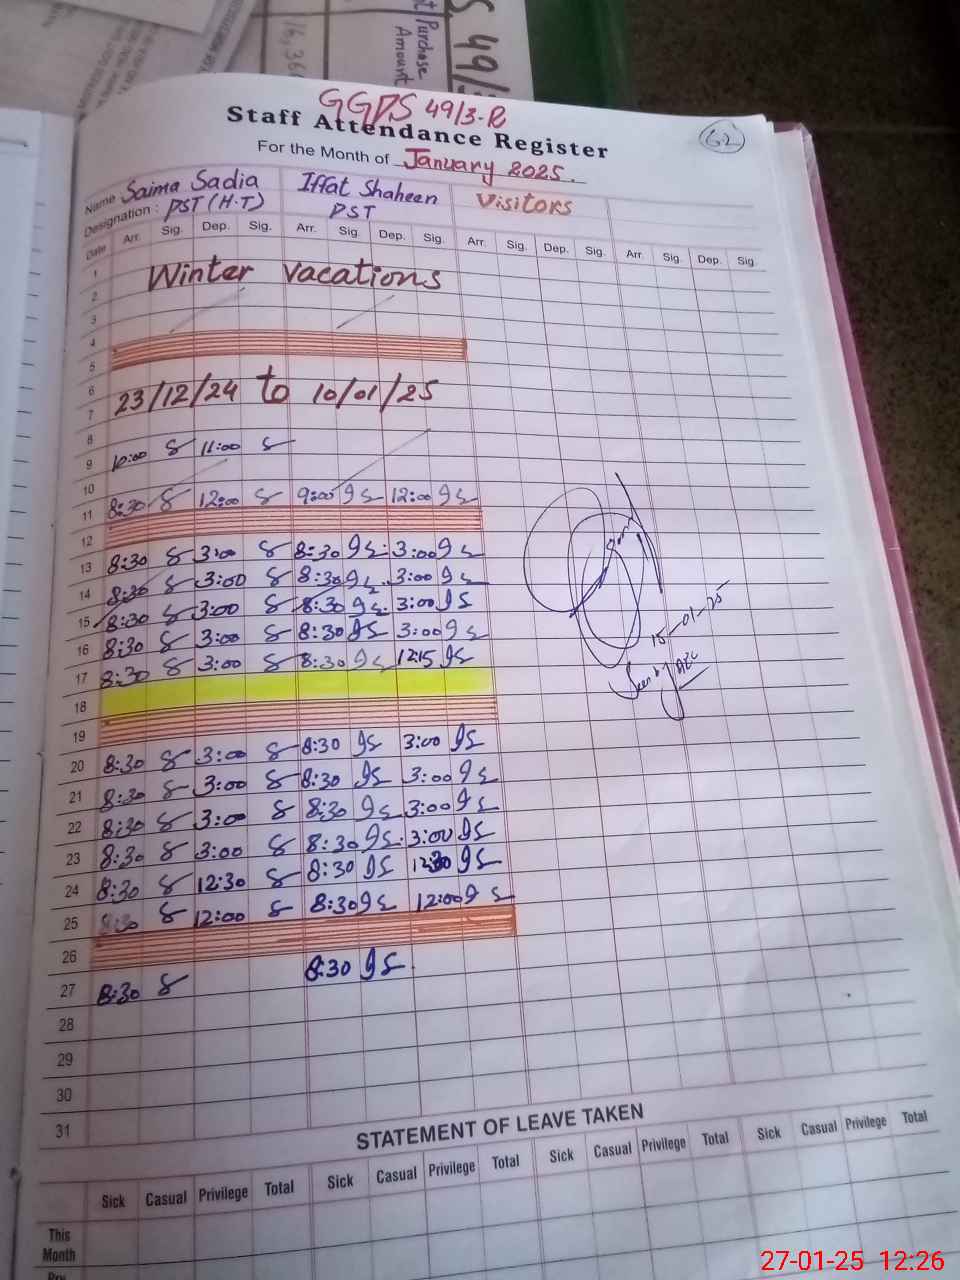 t Purchase
Amount
16,36
S 49/3
GGPS 49/3-R
Staff Attendance Register
62
For the Month of January 2025.
Name Saima Sadia Iffat Shaheen Visitors
Designation : PST (H.T) PST
Date Arr. Sig. Dep. Sig. Arr. Sig. Dep. Sig. Arr. Sig. Dep. Sig. Arr. Sig. Dep. Sig.
1 Winter vacations
2
3
4
5
6
7 23/12/24 to 10/01/25
8
9 10:00 S 11:00 S
10
11 8:30 S 12:00 S 9:00 IS 12:00 IS
12
13 8:30 S 3:00 S 8:30 IS 3:00 IS
14 8:30 S 3:00 S 8:30 IS 3:00 IS
15 8:30 S 3:00 S 8:30 IS 3:00 IS
16 8:30 S 3:00 S 8:30 IS 3:00 IS
17 8:30 S 3:00 S 8:30 IS 12:15 IS
15-01-25
Seen by AEO
18
19
20 8:30 S 3:00 S 8:30 IS 3:00 IS
21 8:30 S 3:00 S 8:30 IS 3:00 IS
22 8:30 S 3:00 S 8:30 IS 3:00 IS
23 8:30 S 3:00 S 8:30 IS 3:00 IS
24 8:30 S 12:30 S 8:30 IS 12:30 IS
25 8:30 S 12:00 S 8:30 IS 12:00 IS
26
27 8:30 S 8:30 IS
28
29
30
31
STATEMENT OF LEAVE TAKEN
Sick Casual Privilege Total Sick Casual Privilege Total Sick Casual Privilege Total Sick Casual Privilege Total
This
Month
27-01-25 12:26